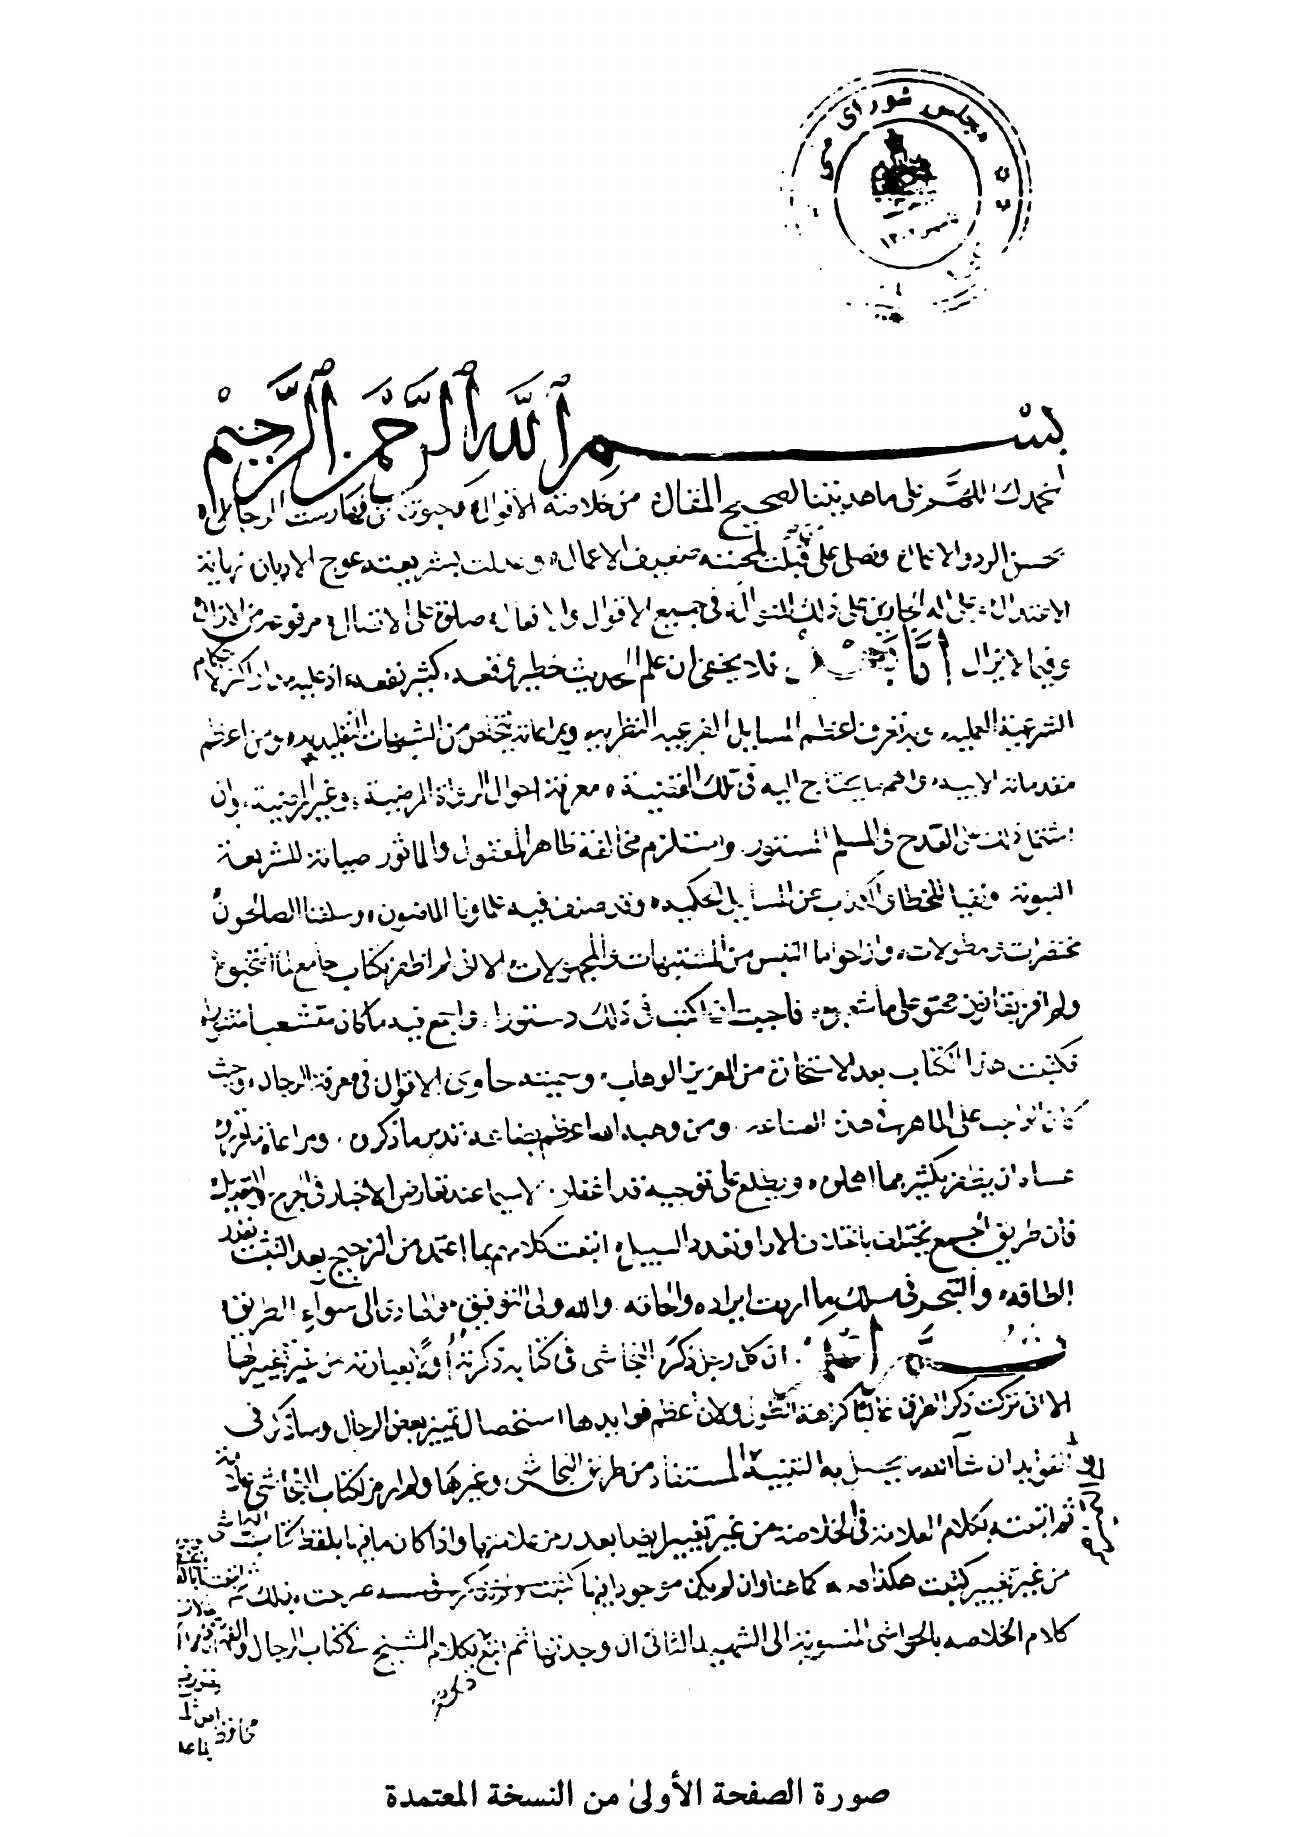 مجلس شورای ملی
۱۳۰۲
بسم الله الرحمن الرحيم
نحمدك اللهم على ما هديتنا لصحيح المقال من خلاصة الأقوال
نحسن الرد والاتباع ونصلي على قبلت لمحبته ضعيف الاعمال وعدلت بشريعته عوج الاديان نهاية
الاعتدال على اله الحارين على ذلك المنوال في جميع الاقوال والافعال صلوة على الاتصال مرفوعة من
وفيما لا يزال اما بعد فلا يخفى ان علم الحديث خطير كثير نفعه اذ عليه مدار
الشرعية العملية وبه تعرف اعظم المسايل الفرعية النظرية وبمراعاته يتخلص من الشبهات التقليدية ومن اعظم
مقدماته واهم ما يحتاج اليه في تلك القضية معرفة احوال الرواة المرضية وغير المرضية وان
اشتمل ذلك على القدح في المسلم المستور واستلزم مخالفة ظاهر المعقول والماثور صيانة للشريعة
النبوية ونفيا للخطا والكذب عن المسايل الحكمية وقد صنف فيه علماونا الماضون وسلفنا الصالحون
مختصرات ومطولات وازاحوا ما التبس من المشتبهات والمجهولات الا اني لم اظفر بكتاب جامع لما انتخبوه
ولم اقف على ما شعبوه فاحببت ان اكتب في ذلك دستورا واجمع فيه ما كان متشعبا
فكتبت هذا الكتاب بعد الاستخارة من العزيز الوهاب وسميته حاوي الاقوال في معرفة الرجال وحيث
كان الواجب على الماهر في هذه الصناعة ومن وهبه الله اعظم بضاعة تدبر ما ذكروه ومراعاة ما قرروه
عساه ان يظفر بكثير مما اهملوه ويطلع على توجيه قد اغفلوه لا سيما عند تعارض الاخبار في الجرح والتعديل
فان طريق الجمع يختلف باختلاف الارا وتعدد السبيل اتبعت كلامهم بما اعتمد من الترجيح بعد التثبت بقدر
الطاقة والتبحر في مسلك ما اردت ايراده والحاقه والله ولي التوفيق والهادي الى سواء الطريق
ثم اعلم ان كل رجل ذكره النجاشي في كتابه ذكرته اولا بعبارته من غير تغيير لها
الا اني تركت ذكر الطرق غالبا كراهة التطويل ولان اعظم فوايدها استحصال تمييز بعض الرجال وساذكر في
الفوايد ان شاء الله ما يحصل به التنبيه المستفاد من طريق النجاشي وغيرها ولم ارمز لكتاب النجاشي علامة
ثم اتبعته بكلام العلامة في الخلاصة من غير تغيير ايضا بعد رمز علامتها واذا كان ما فيها بلفظ كتاب النجاشي
من غير تغيير كتبت هكذا صه كما هنا وان لم يكن موجودا فيها صرحت بذلك ثم
كلام الخلاصة بالحواشي المنسوبة الى الشهيد الثاني ان وجدتها ثم اتبع بكلام الشيخ في كتاب الرجال والفهرست
صورة الصفحة الأولى من النسخة المعتمدة